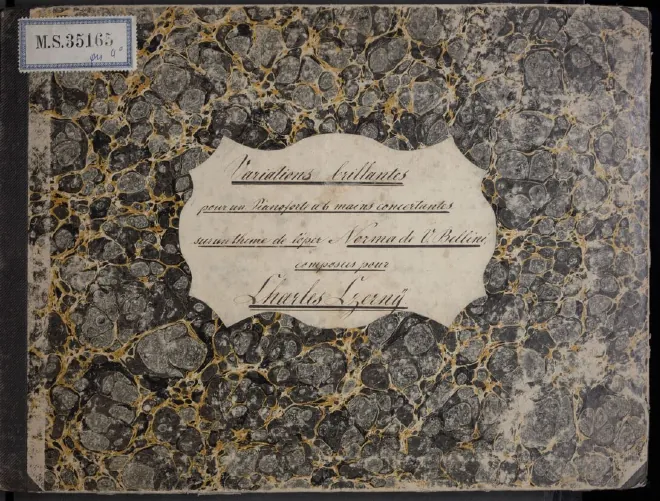 M.S.35165
qu 4°
Variations brillantes
pour un Pianoforte à 6 mains concertantes
sur un thème de l'oper Norma de V. Bellini,
composées pour
Charles Czerný